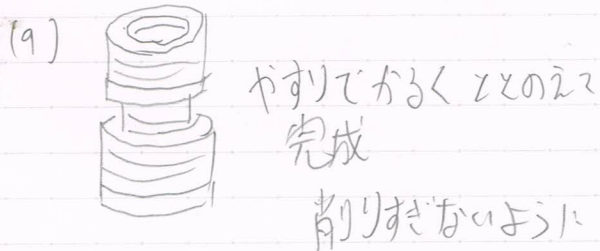 (9)
やすりでかるくととのえて
完成
削りすぎないように